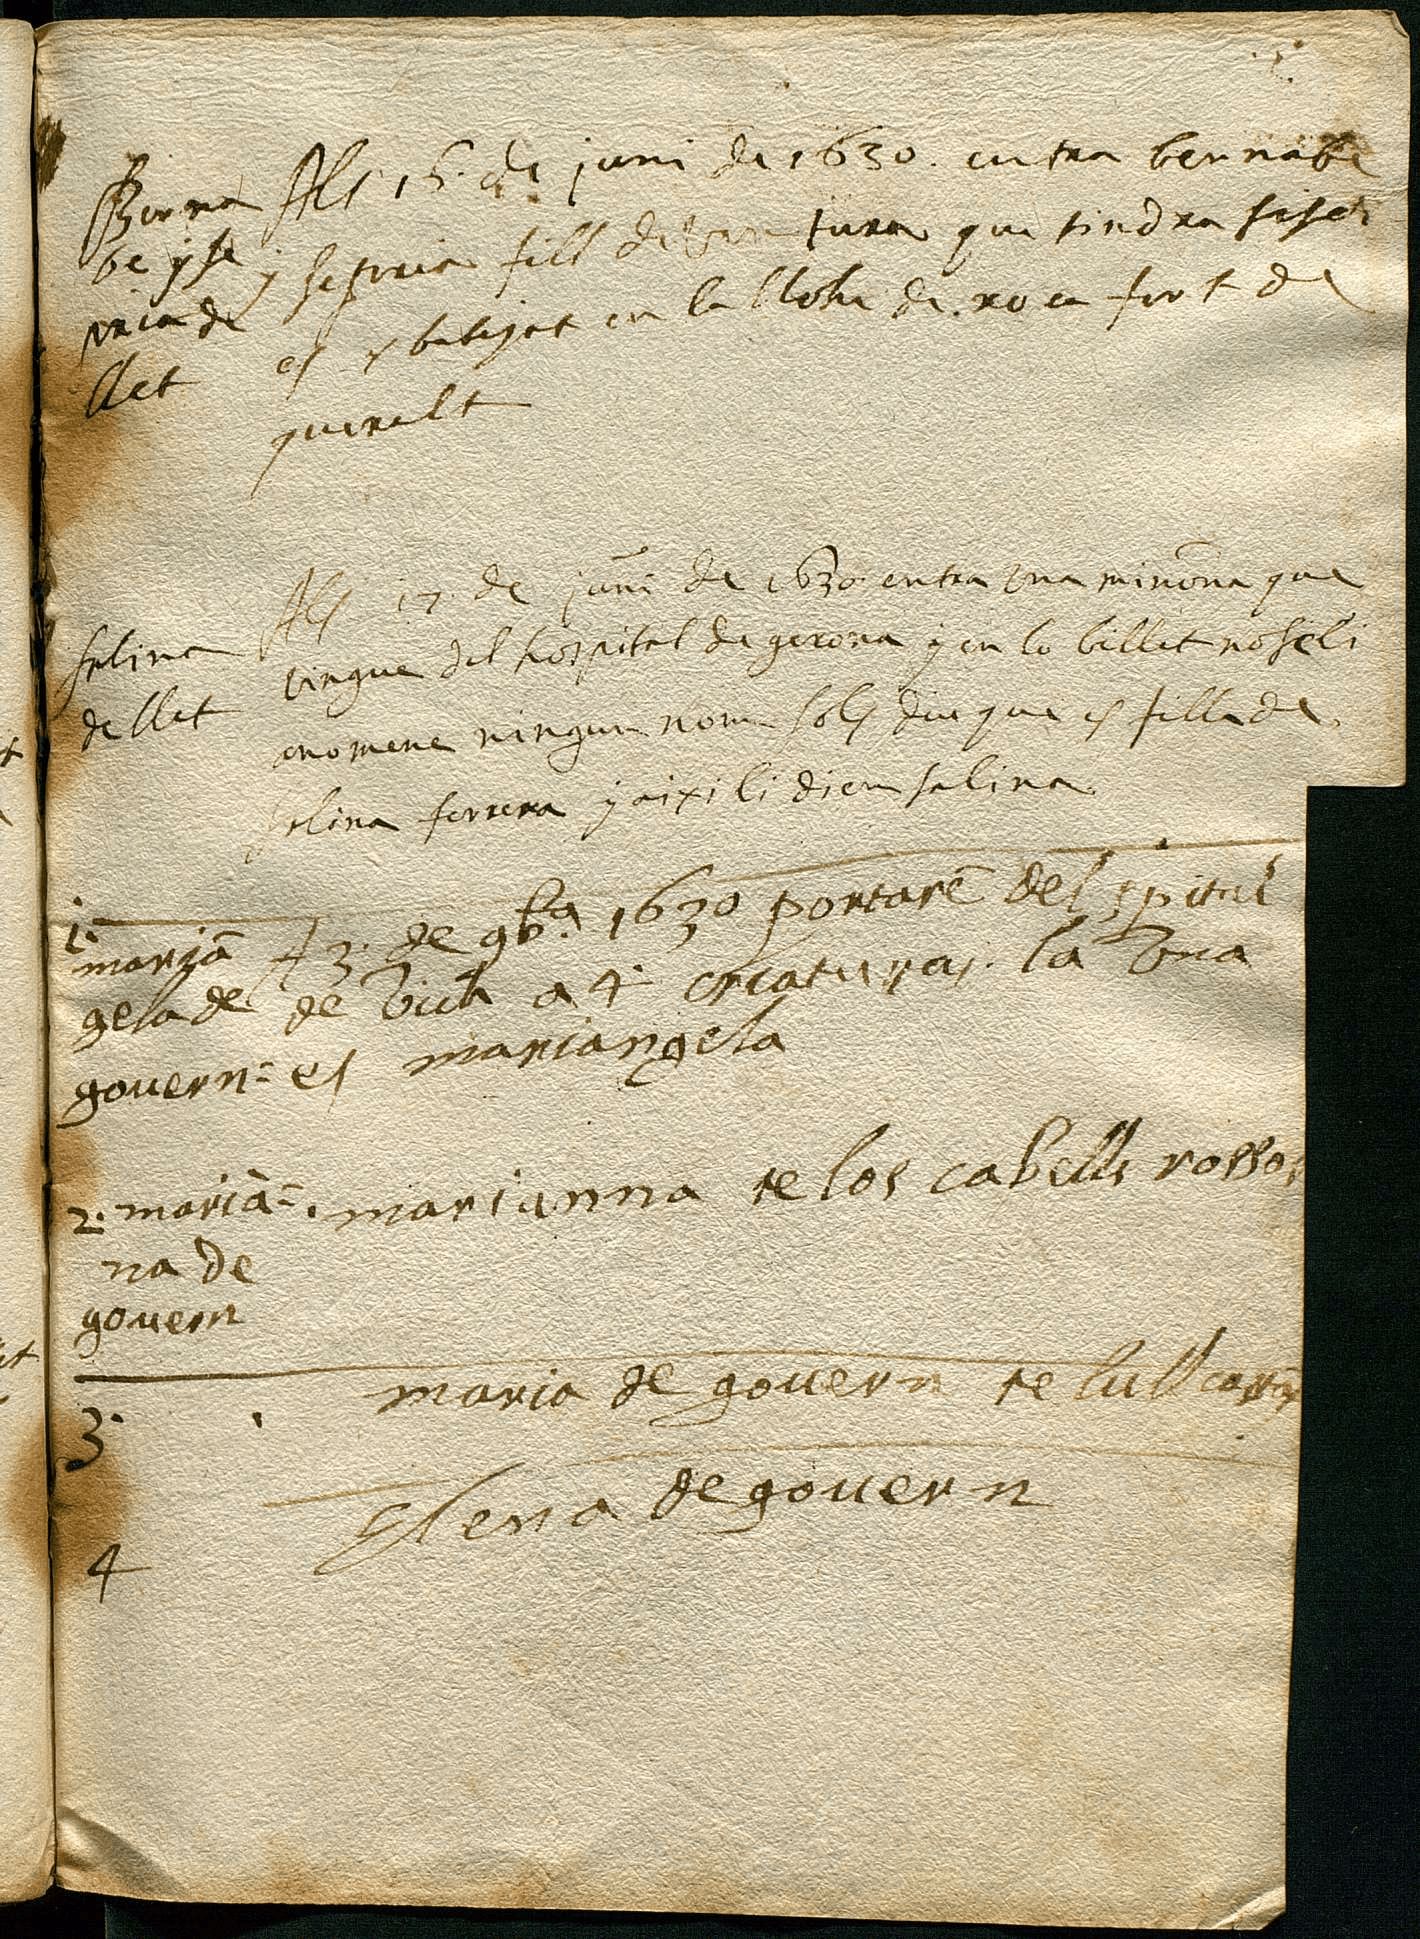 Berna
be y se
pria de
llet
Als 16. de juni de 1630. entra bernabe
y sepria fill de ventura que tindra
es y batejat en la llohe de roca fort de
queralt
salina
de llet
Als 17. de juñi de 1630. entra una miñona que
vingue del hospital de gerona y en lo billet no se li
anomene ningun nom sols diu que es filla de
salina ferrera y aixi li diem salina
1.
mariã
gela de
govern=
A 3. de 9b.ᵃ 1630 portarẽ del spital
de vich a 4 criaturas. la una
es mariangela
2. mariã=
na de
govern
marianna te los cabells rossos
3.
maria de govern te lull
4
Elena de govern